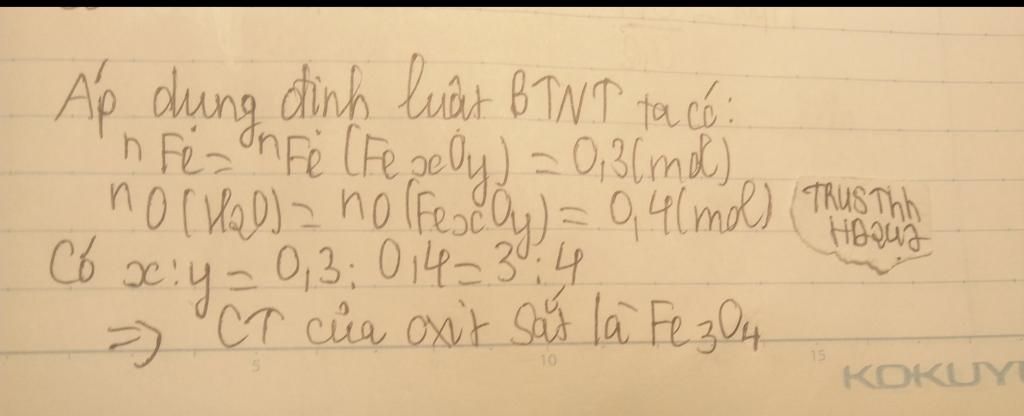 Áp dụng định luật BTNT ta có:
nFe = nFe (FexOy) = 0,3(mol)
nO(H2O) = nO(FexOy) = 0,4(mol)
TRUSThh
HB2U7
Có x:y = 0,3: 0,4 = 3:4
=> CT của oxit sắt là Fe3O4
5 10 15
KOKUY